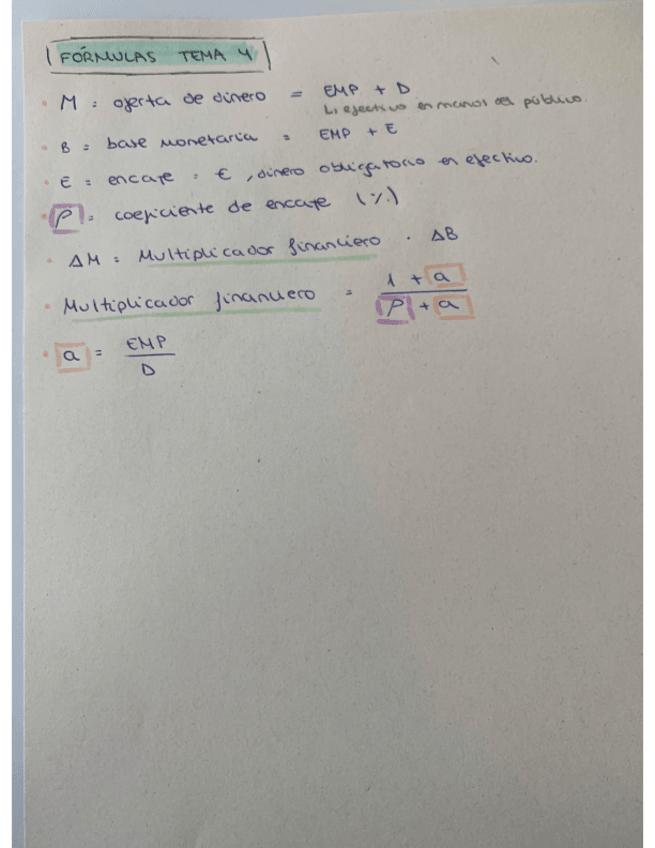 FÓRMULAS TEMA 4
• M = oferta de dinero = EMP + D
↳ efectivo en manos del público.
• B = base monetaria = EMP + E
• E = encaje = €, dinero obligatorio en efectivo.
• ρ = coeficiente de encaje (%)
• ΔM = Multiplicador financiero · ΔB
• Multiplicador financiero = (1 + a) / (ρ + a)
• a = EMP / D